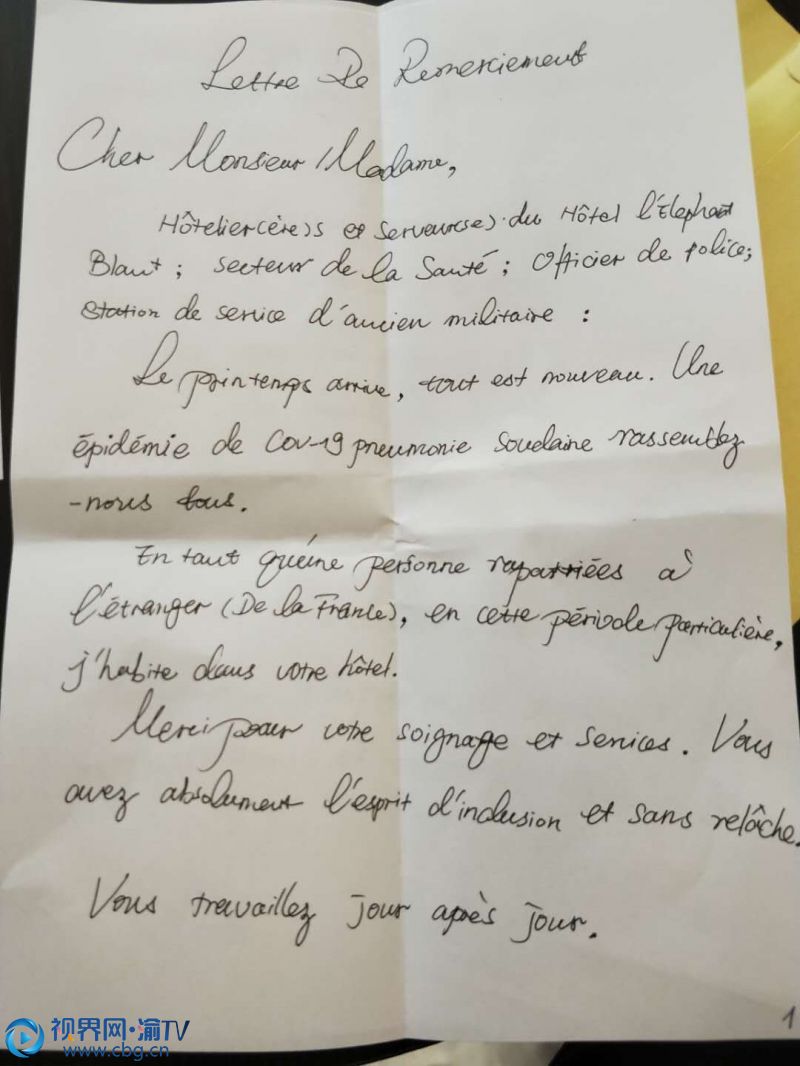 Lettre De Remerciement
Cher Monsieur / Madame,
Hôtelier(ère)s et serveur(se)s du Hôtel l'Elephant
Blant ; secteur de la Santé ; Officier de police ;
Station de service d'ancien militaire :
Le printemps arrive, tout est nouveau. Une
épidémie de Cov-19 pneumonie soudaine rassemblez
-nous tous.
En tant qu'une personne rapatriées à
l'étranger (De la France), en cette période particulière,
j'habite dans votre hôtel.
Merci pour votre soignage et services. Vous
avez absolument l'esprit d'inclusion et sans relâche.
Vous travaillez jour après jour.
1
视界网·渝TV
www.cbg.cn